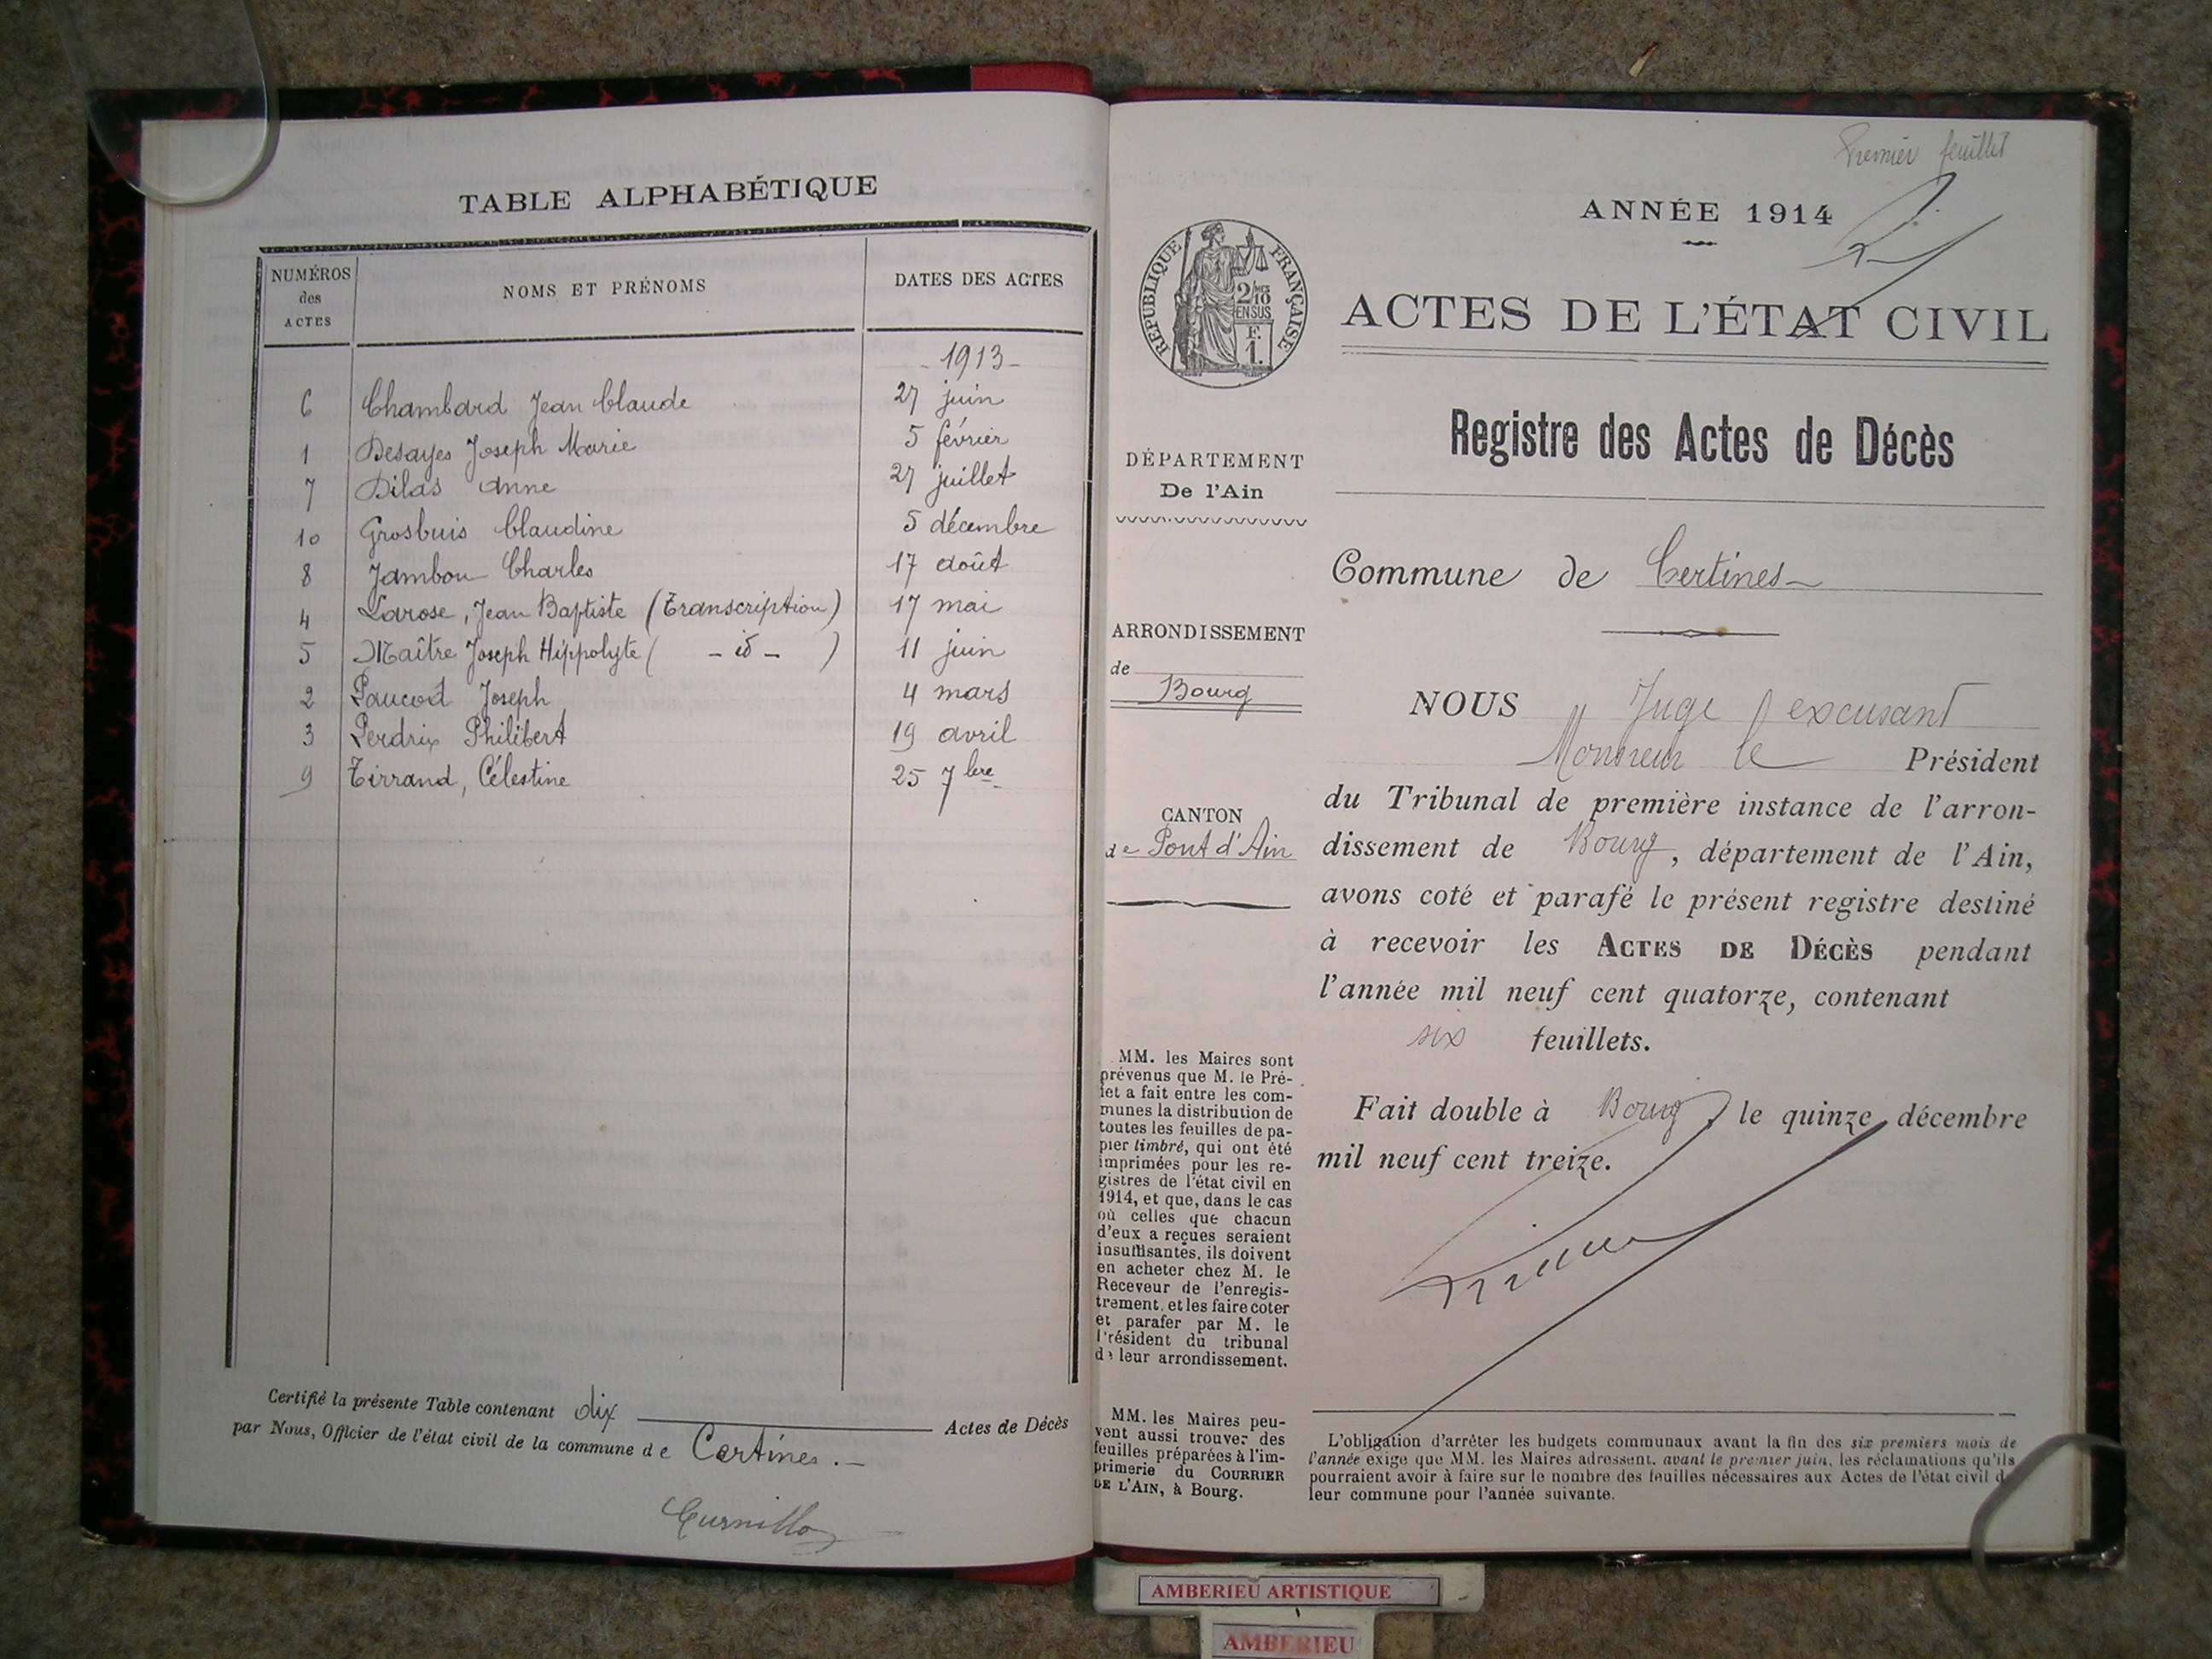 TABLE ALPHABÉTIQUE
NUMÉROS des ACTES | NOMS ET PRÉNOMS | DATES DES ACTES
- 1913 -
6 Chambard Jean Claude 27 juin
1 Desayes Joseph Marie 5 février
7 Dilas Anne 27 juillet
10 Grosbuis Claudine 5 décembre
8 Jambon Charles 17 août
4 Larose, Jean Baptiste (Transcription) 17 mai
5 Maître Joseph Hippolyte ( - id - ) 11 juin
2 Paucod Joseph 4 mars
3 Perdrix Philibert 19 avril
9 Tirrand, Célestine 25 7bre
Certifié la présente Table contenant dix Actes de Décès
par Nous, Officier de l'état civil de la commune de Certines.-
Premier feuillet
ANNÉE 1914
RÉPUBLIQUE FRANÇAISE
2/10
EN SUS
F.
1.
ACTES DE L'ÉTAT CIVIL
Registre des Actes de Décès
DÉPARTEMENT
De l'Ain
Commune de Certines
ARRONDISSEMENT
de
Bourg
CANTON
de Pont d'Ain
NOUS Juge excusant
Monsieur le Président
du Tribunal de première instance de l'arron-
dissement de Bourg, département de l'Ain,
avons coté et parafé le présent registre destiné
à recevoir les ACTES DE DÉCÈS pendant
l'année mil neuf cent quatorze, contenant
six feuillets.
Fait double à Bourg le quinze décembre
mil neuf cent treize.
MM. les Maires sont
prévenus que M. le Pré-
fet a fait entre les com-
munes la distribution de
toutes les feuilles de pa-
pier timbré, qui ont été
imprimées pour les re-
gistres de l'état civil en
1914, et que, dans le cas
où celles que chacun
d'eux a reçues seraient
insuffisantes, ils doivent
en acheter chez M. le
Receveur de l'enregis-
trement, et les faire coter
et parafer par M. le
Président du tribunal
de leur arrondissement.
MM. les Maires peu-
vent aussi trouver des
feuilles préparées à l'im-
primerie du COURRIER
DE L'AIN, à Bourg.
L'obligation d'arrêter les budgets communaux avant la fin des six premiers mois de
l'année exige que MM. les Maires adressent, avant le premier juin, les réclamations qu'ils
pourraient avoir à faire sur le nombre des feuilles nécessaires aux Actes de l'état civil de
leur commune pour l'année suivante.
AMBERIEU ARTISTIQUE
AMBERIEU